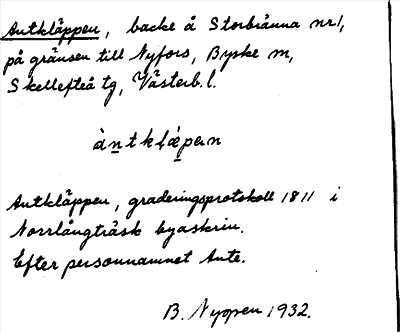 Antkläppen, backe å Storbränna nr 1,
på gränsen till Nyfors, Byske sn,
Skellefteå tg, Västerb. l.
àntkḷǽpən
Antkläppen, graderingsprotokoll 1811 i
Norrlångträsk byaskrin.
Efter personnamnet Ante.
B. Nyppen 1932.